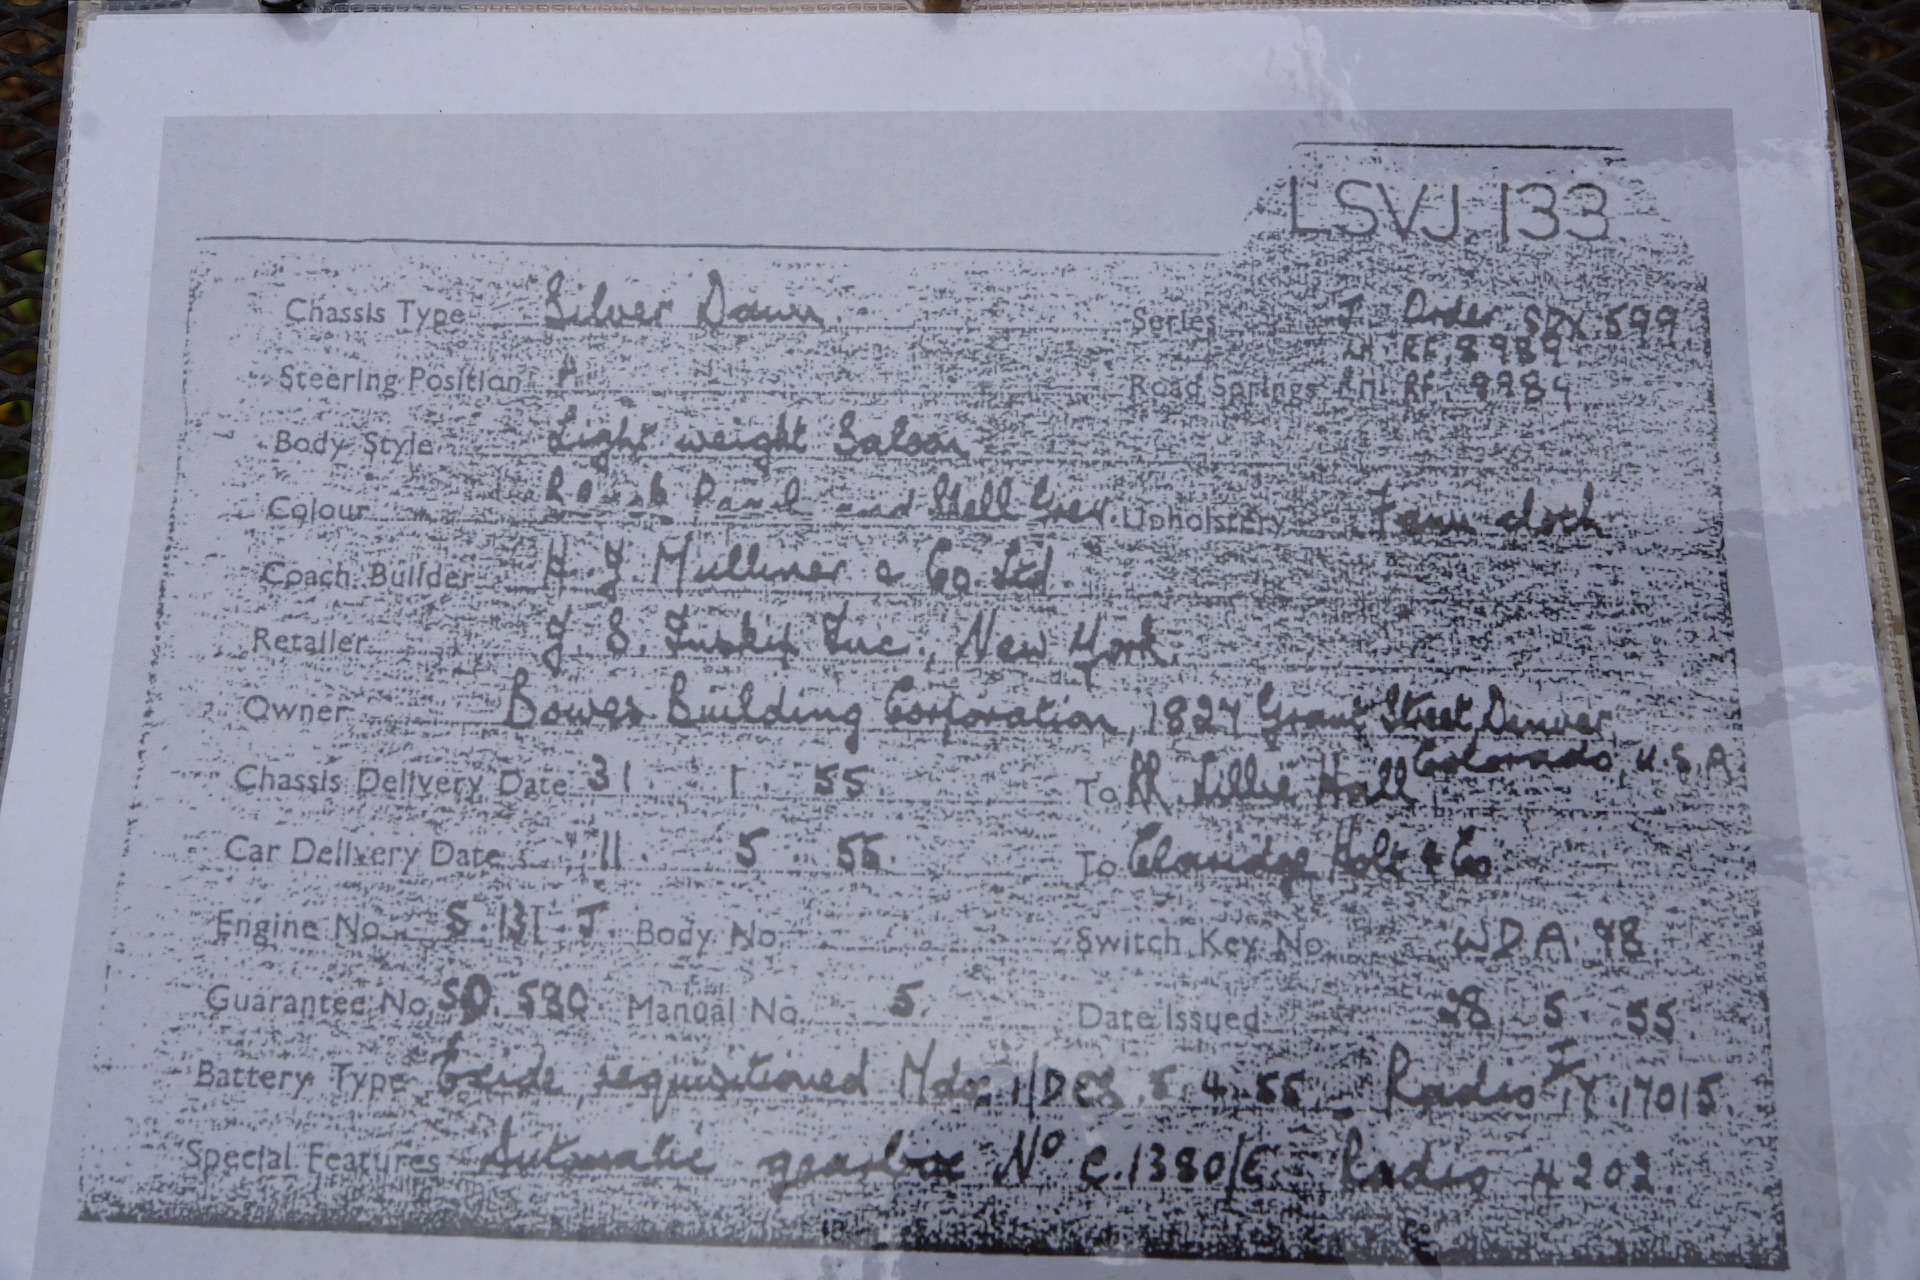 LSVJ 133
Chassis Type Silver Dawn Series J Order SDX 599
LH. RF. 8989
Steering Position Road Springs RH. RF. 8989
Body Style Light weight Saloon
Colour Black Pearl and Shell Grey Upholstery Fawn cloth
Coach Builder H. J. Mulliner & Co. Ltd.
Retailer J. S. Inskip Inc., New York.
Owner Bowes Building Corporation, 1827 Grant Street Denver
Colorado, U.S.A
Chassis Delivery Date 31. 1. 55 To RR Lillie Hall
Car Delivery Date 11. 5. 55. To Claridge Holt & Co
Engine No. S. 131. J. Body No. Switch Key No. WDA 78
Guarantee No. SD. 580. Manual No. 5. Date Issued 28. 5. 55
Battery Type Exide requisitioned 5. 4. 55 Radio TY. 17015.
Special Features Automatic gearbox No C.1380/E Radio 4202.